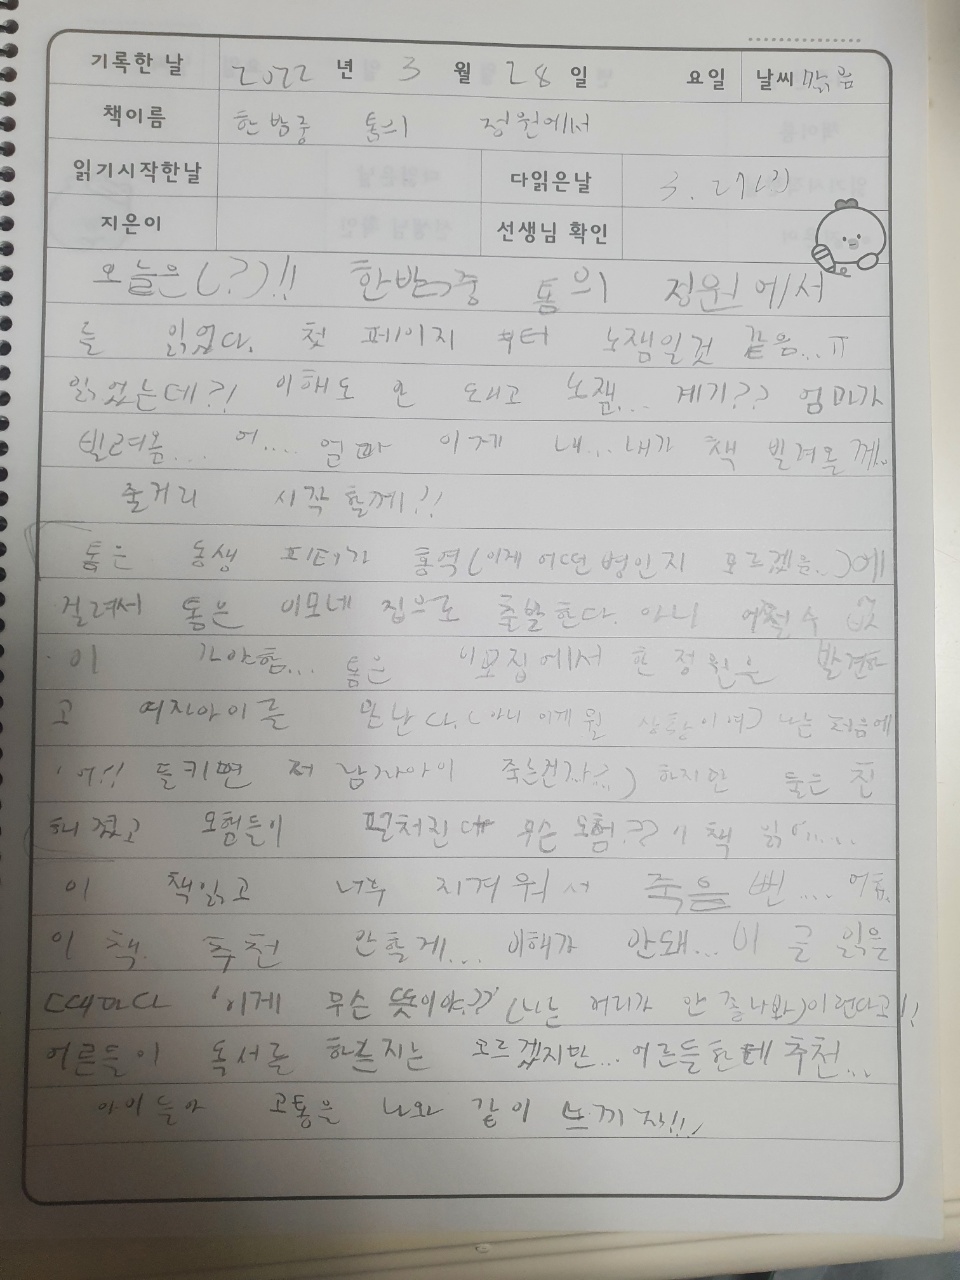 기록한 날 2022 년 3 월 28 일 요일 날씨 맑음
책이름 한밤중 톰의 정원에서
읽기시작한날 다읽은날 3. 27(일)
지은이 선생님 확인
오늘은(?)!! 한밤중 톰의 정원에서
를 읽었다. 첫 페이지 부터 노잼일것 같음...ㅠ
읽었는데?! 이해도 안 되고 노잼... 계기?? 엄마가
빌려옴.... 어.... 엄마 이게 내... 내가 책 빌려올께.
줄거리 시작할께!!
톰은 동생 피터가 홍역(이게 어떤병인지 모르겠음..)에
걸려서 톰은 이모네 집으로 출발한다. 아니 어쩔수 없
이 가야함... 톰은 이모집에서 한 정원을 발견하
고 여자아이를 만난다.(아니 이게 뭘 상황이여) 나는 처음에
'어!! 들키면 저 남자아이 죽는건가..) 하지만 둘은 친
해졌고 모험들이 펼처진대 무슨 모험?? 책
이 책읽고 너무 지겨워서 죽을 뻔.... 어흠.
이 책 추천 안할게... 이해가 안돼... 이 글 읽을
때마다 '이게 무슨 뜻이야??' (나는 머리가 안 좋나봐)이런다고!!
어른들이 독서를 하는지는 모르겠지만... 어른들한테 추천...
아이들아 고통은 나와 같이 느끼자!!!